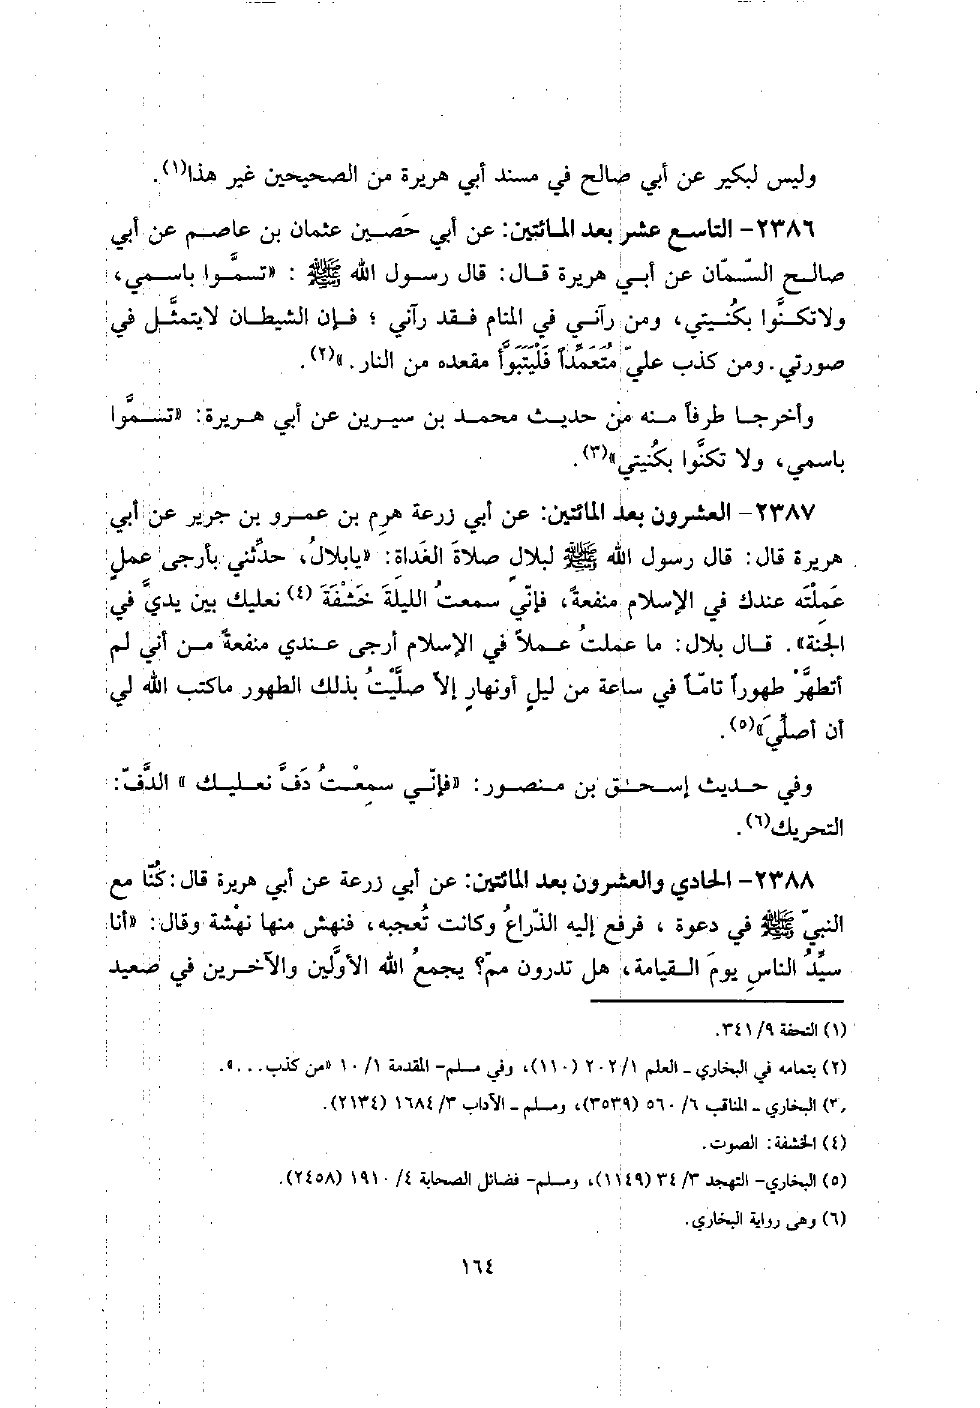 وليس لبكير عن أبي صالح في مسند أبي هريرة من الصحيحين غير هذا(١).
٢٣٨٦- التاسع عشر بعد المائتين: عن أبي حَصين عثمان بن عاصم عن أبي
صالح السّمّان عن أبي هريرة قال: قال رسول الله ﷺ : «تسمَّوا باسمي،
ولاتكنَّوا بكُنيتي، ومن رآني في المنام فقد رآني ؛ فإن الشيطان لايتمثَّل في
صورتي. ومن كذب عليّ مُتَعَمِّداً فَلْيَتَبَوَّأ مقعده من النار.»(٢).
وأخرجا طرفاً منه من حديث محمد بن سيرين عن أبي هريرة: «تسمَّوا
باسمي، ولا تكنَّوا بكُنيتي»(٣).
٢٣٨٧- العشرون بعد المائتين: عن أبي زرعة هرِم بن عمرو بن جرير عن أبي
هريرة قال: قال رسول الله ﷺ لبلالٍ صلاةَ الغَداةِ: «يابلالُ، حدِّثني بأرجى عملٍ
عَمِلْتَه عندك في الإسلام منفعةً، فإنّي سمعتُ الليلةَ خَشْفَةَ (٤) نعليك بين يديَّ في
الجنة». قال بلال: ما عملتُ عملاً في الإسلام أرجى عندي منفعةً من أني لم
أتطهَّرْ طهوراً تامّاً في ساعة من ليلٍ أونهارٍ إلاّ صلَّيْتُ بذلك الطهور ماكتب الله لي
أن أصلِّيَ»(٥).
وفي حديث إسحق بن منصور: «فإنّي سمِعْتُ دَفَّ نعليك » الدَّفّ:
التحريك(٦).
٢٣٨٨- الحادي والعشرون بعد المائتين: عن أبي زرعة عن أبي هريرة قال: كُنّا مع
النبيّ ﷺ في دعوة ، فرفع إليه الذّراعُ وكانت تُعجبه، فنهش منها نهْشة وقال: «أنا
سيِّدُ الناسِ يومَ القيامة، هل تدرون ممّ؟ يجمعُ الله الأوَّلين والآخرين في صعيد
(١) التحفة ٩/ ٣٤١.
(٢) بتمامه في البخاري - العلم ١/ ٢٠٢ (١١٠)، وفي مسلم- المقدمة ١/ ١٠ «من كذب...».
٣) البخاري - المناقب ٦/ ٥٦٠ (٣٥٣٩)، ومسلم - الآداب ٣/ ١٦٨٤ (٢١٣٤).
(٤) الخشفة: الصوت.
(٥) البخاري- التهجد ٣/ ٣٤ (١١٤٩)، ومسلم- فضائل الصحابة ٤/ ١٩١٠ (٢٤٥٨).
(٦) وهى رواية البخاري.
١٦٤